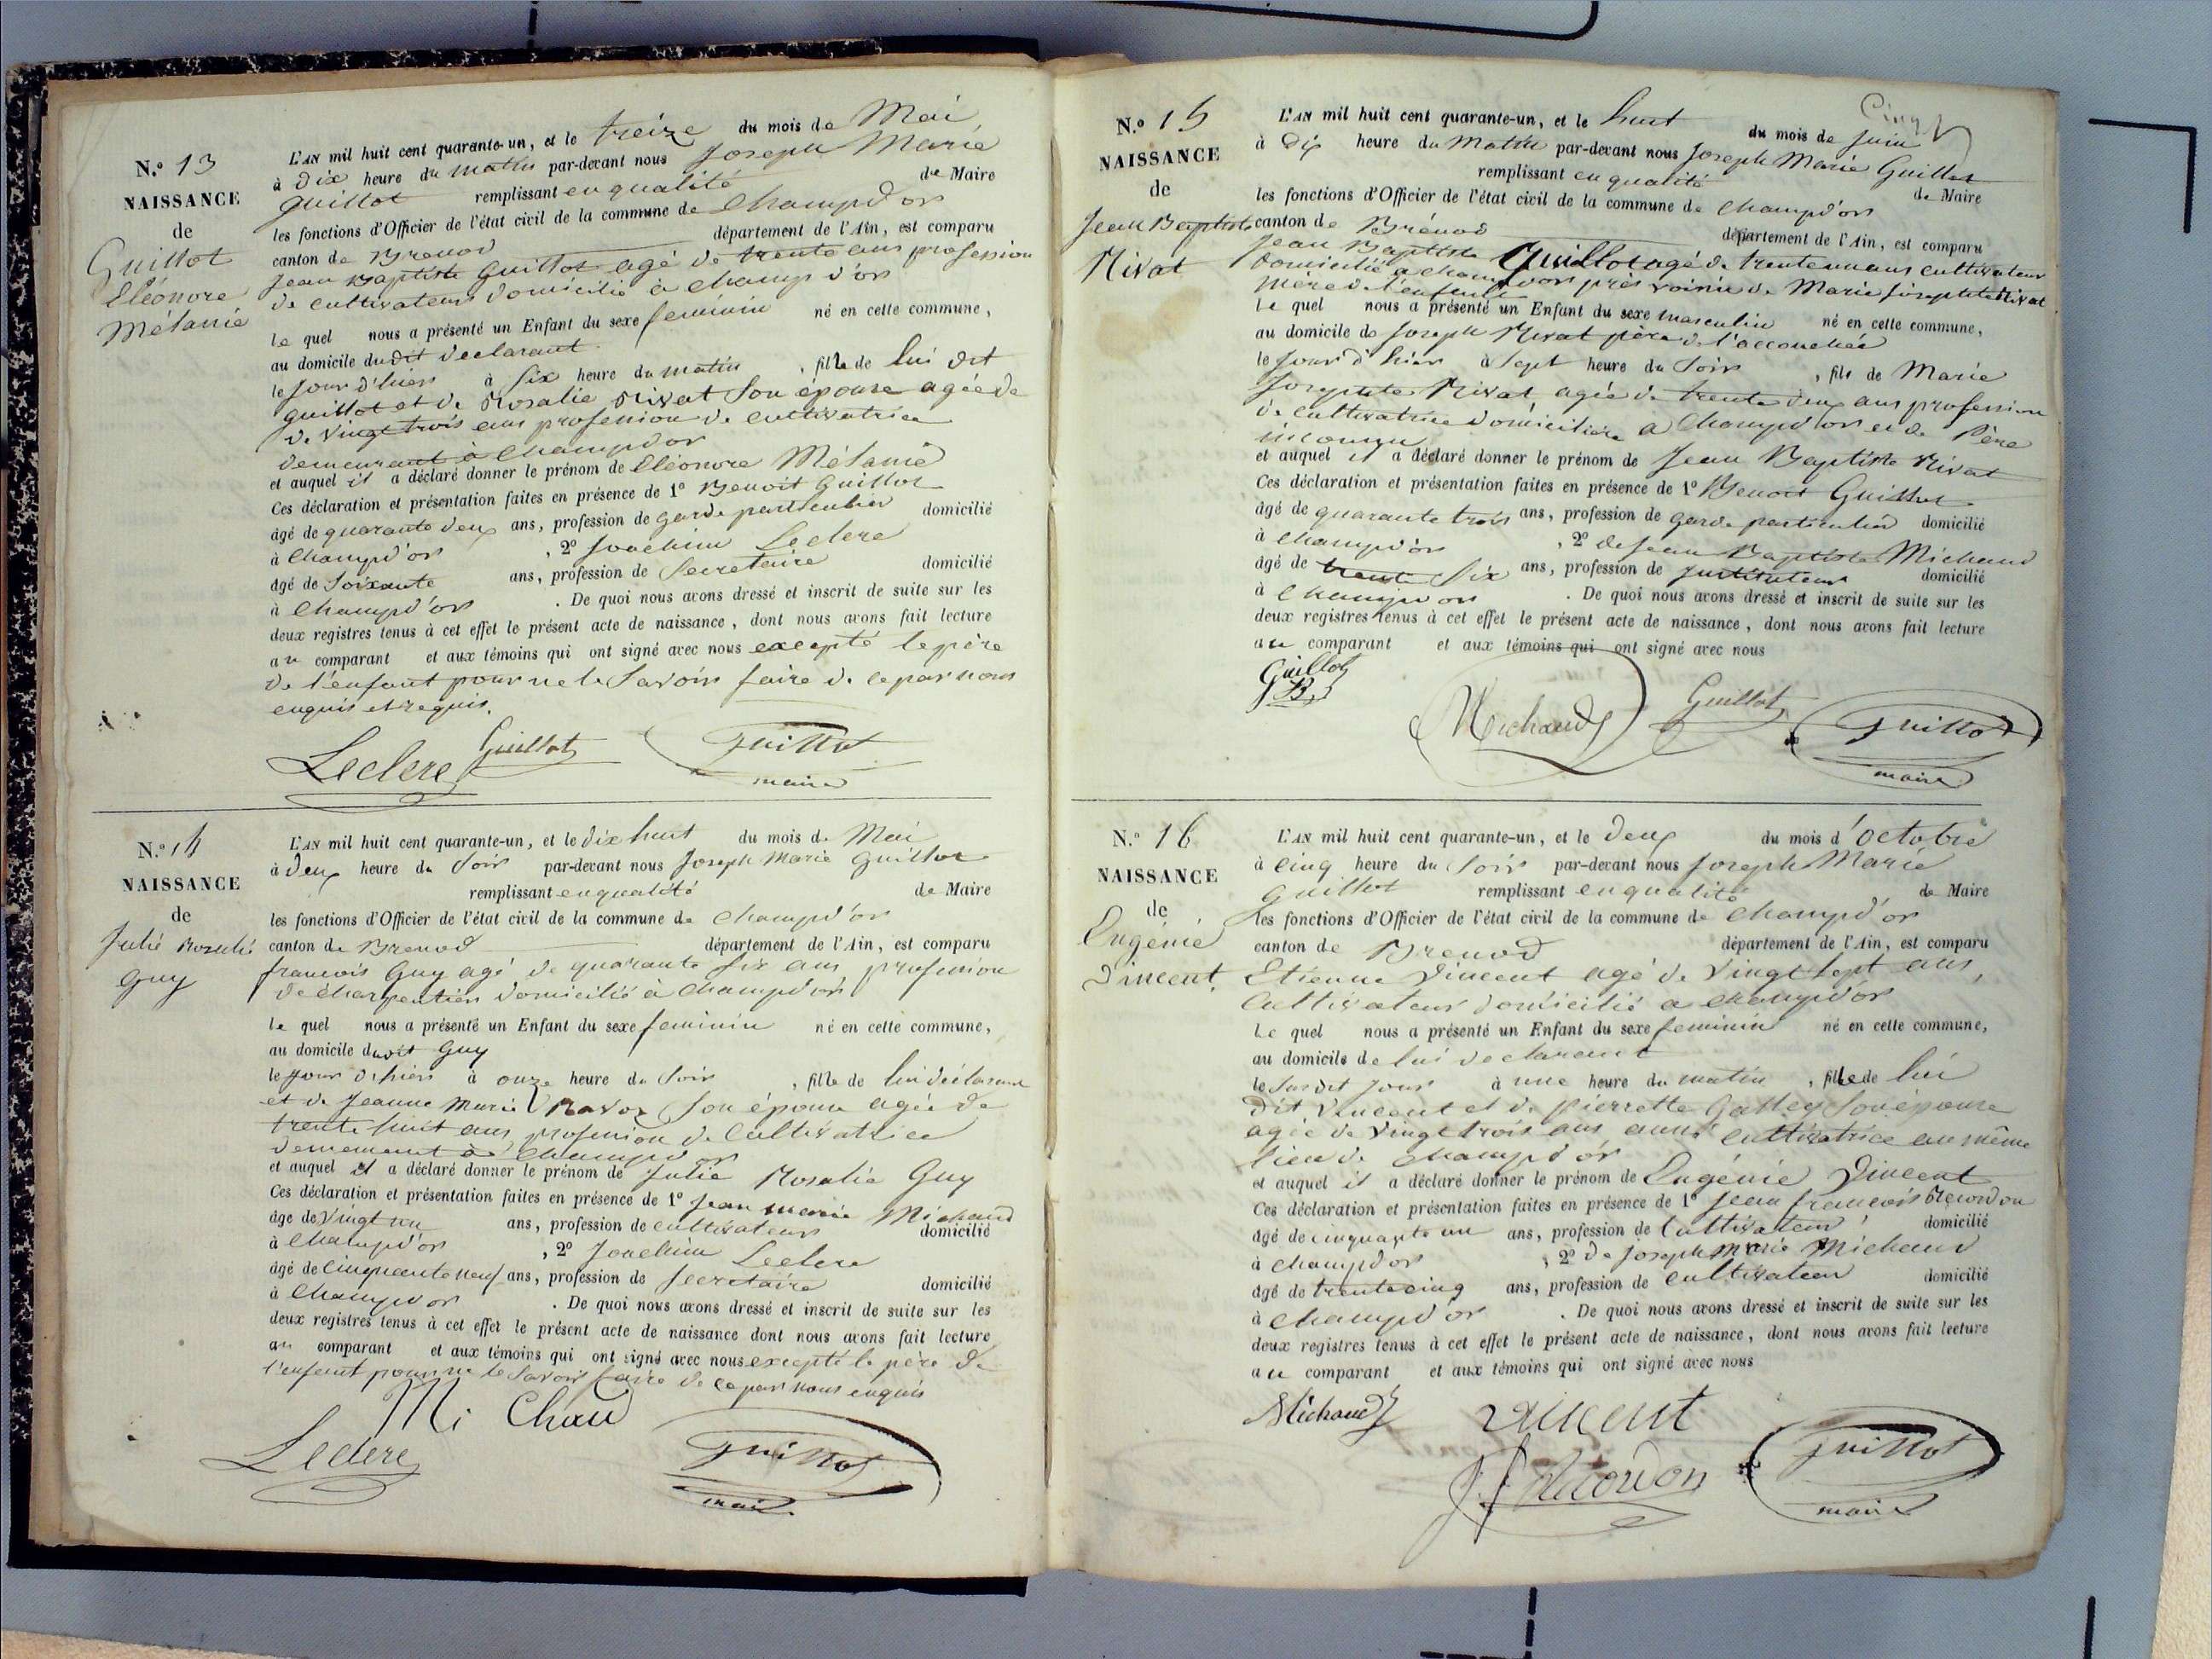 N.o 13
NAISSANCE
de
Guillot
Eléonore
Mélanie
L'AN mil huit cent quarante-un, et le treize du mois de Mai
à dix heure du matin par-devant nous Joseph Marie
Guillot remplissant en qualité de Maire
les fonctions d'Officier de l'état civil de la commune de Champd'or
canton de Brenod département de l'Ain, est comparu
Jean Baptiste Guillot agé de trente ans profession
de cultivateur domicilié à Champ d'or
le quel nous a présenté un Enfant du sexe feminin né en cette commune,
au domicile dudit declarant
le jour d'hier à six heure du matin, fille de lui dit
guillot et de Rosalie Nivat son épouse agée de
de vingt trois ans profession de cultivatrice
demeurant à Champdor
et auquel il a déclaré donner le prénom de Eléonore Mélanie
Ces déclaration et présentation faites en présence de 1o Benoit Guillot
âgé de quarante deux ans, profession de garde particulier domicilié
à Champd'or, 2o Joachim Leclerc
âgé de soixante ans, profession de Secretaire domicilié
à Champd'or. De quoi nous avons dressé et inscrit de suite sur les
deux registres tenus à cet effet le présent acte de naissance, dont nous avons fait lecture
au comparant et aux témoins qui ont signé avec nous excepté le père
de l'enfant pour ne le savoir faire de ce par nous
enquis et requis.
Leclerc Guillot Guillot
maire
N.o 14
NAISSANCE
de
Julie Rosalie
Guy
L'AN mil huit cent quarante-un, et le dix huit du mois de Mai
à deux heure du soir par-devant nous Joseph Marie Guillot
remplissant en qualité de Maire
les fonctions d'Officier de l'état civil de la commune de Champd'or
canton de Brenod département de l'Ain, est comparu
françois Guy agé de quarante six ans, profession
de charpentier domicilié à Champd'or
le quel nous a présenté un Enfant du sexe feminin né en cette commune,
au domicile dudit Guy
le jour d'hier à onze heure du soir, fille de lui déclarant
et de Jeanne Marie Ravoz son épouse agée de
trente huit ans profession de cultivatrice
demeurant à Champdor
et auquel il a déclaré donner le prénom de Julie Rosalie Guy
Ces déclaration et présentation faites en présence de 1o Jean Marie Michaud
âgé de vingt un ans, profession de cultivateur domicilié
à Champd'or, 2o Joachim Leclerc
âgé de cinquante neuf ans, profession de secretaire domicilié
à Champd'or. De quoi nous avons dressé et inscrit de suite sur les
deux registres tenus à cet effet le présent acte de naissance dont nous avons fait lecture
au comparant et aux témoins qui ont signé avec nous excepté le père de
l'enfant pour ne le savoir faire de ce par nous enquis
Mi Chaud
Leclerc Guillot
maire
Cinq
N.o 15
NAISSANCE
de
Jean Baptiste
Nivat
L'AN mil huit cent quarante-un, et le huit du mois de Juin
à dix heure du matin par-devant nous Joseph Marie Guillot
remplissant en qualité de Maire
les fonctions d'Officier de l'état civil de la commune de Champd'or
canton de Brénod département de l'Ain, est comparu
Jean Baptiste Guillot agé de trente un ans cultivateur
domicilié à Champdor près voisin de Marie Josephte Nivat
mère de l'enfant
le quel nous a présenté un Enfant du sexe masculin né en cette commune,
au domicile de Joseph Nivat père de l'accouchée
le jour d'hier à sept heure du soir, fils de Marie
Josephte Nivat agée de trente deux ans profession
de cultivatrice domiciliée à Champd'or et de Père
inconnu
et auquel il a déclaré donner le prénom de Jean Baptiste Nivat
Ces déclaration et présentation faites en présence de 1o Benoit Guillot
âgé de quarante trois ans, profession de garde particulier domicilié
à Champd'or, 2o de Jean Baptiste Michaud
âgé de trente six ans, profession de Instituteur domicilié
à Champd'or. De quoi nous avons dressé et inscrit de suite sur les
deux registres tenus à cet effet le présent acte de naissance, dont nous avons fait lecture
au comparant et aux témoins qui ont signé avec nous
Guillot
JB
Michaud Guillot Guillot
maire
N.o 16
NAISSANCE
de
Eugénie
Vincent
L'AN mil huit cent quarante-un, et le deux du mois d'octobre
à cinq heure du soir par-devant nous Joseph Marie
Guillot remplissant en qualité de Maire
les fonctions d'Officier de l'état civil de la commune de Champd'or
canton de Brenod département de l'Ain, est comparu
Etienne Vincent agé de vingt sept ans,
cultivateur domicilié a Champd'or
le quel nous a présenté un Enfant du sexe feminin né en cette commune,
au domicile de lui declarant
le susdit jour à une heure du matin, fille de lui
dit Vincent et de Pierrette Galley son épouse
agée de vingt trois ans aussi cultivatrice au même
lieu de Champd'or
et auquel il a déclaré donner le prénom de Eugénie Vincent
Ces déclaration et présentation faites en présence de 1o Jean François Recordon
âgé de cinquante un ans, profession de Cultivateur domicilié
à Champdor, 2o de Joseph Marie Michaud
âgé de trente cinq ans, profession de cultivateur domicilié
à Champd'or. De quoi nous avons dressé et inscrit de suite sur les
deux registres tenus à cet effet le présent acte de naissance, dont nous avons fait lecture
au comparant et aux témoins qui ont signé avec nous
Michaud Vincent
J f Recordon Guillot
maire